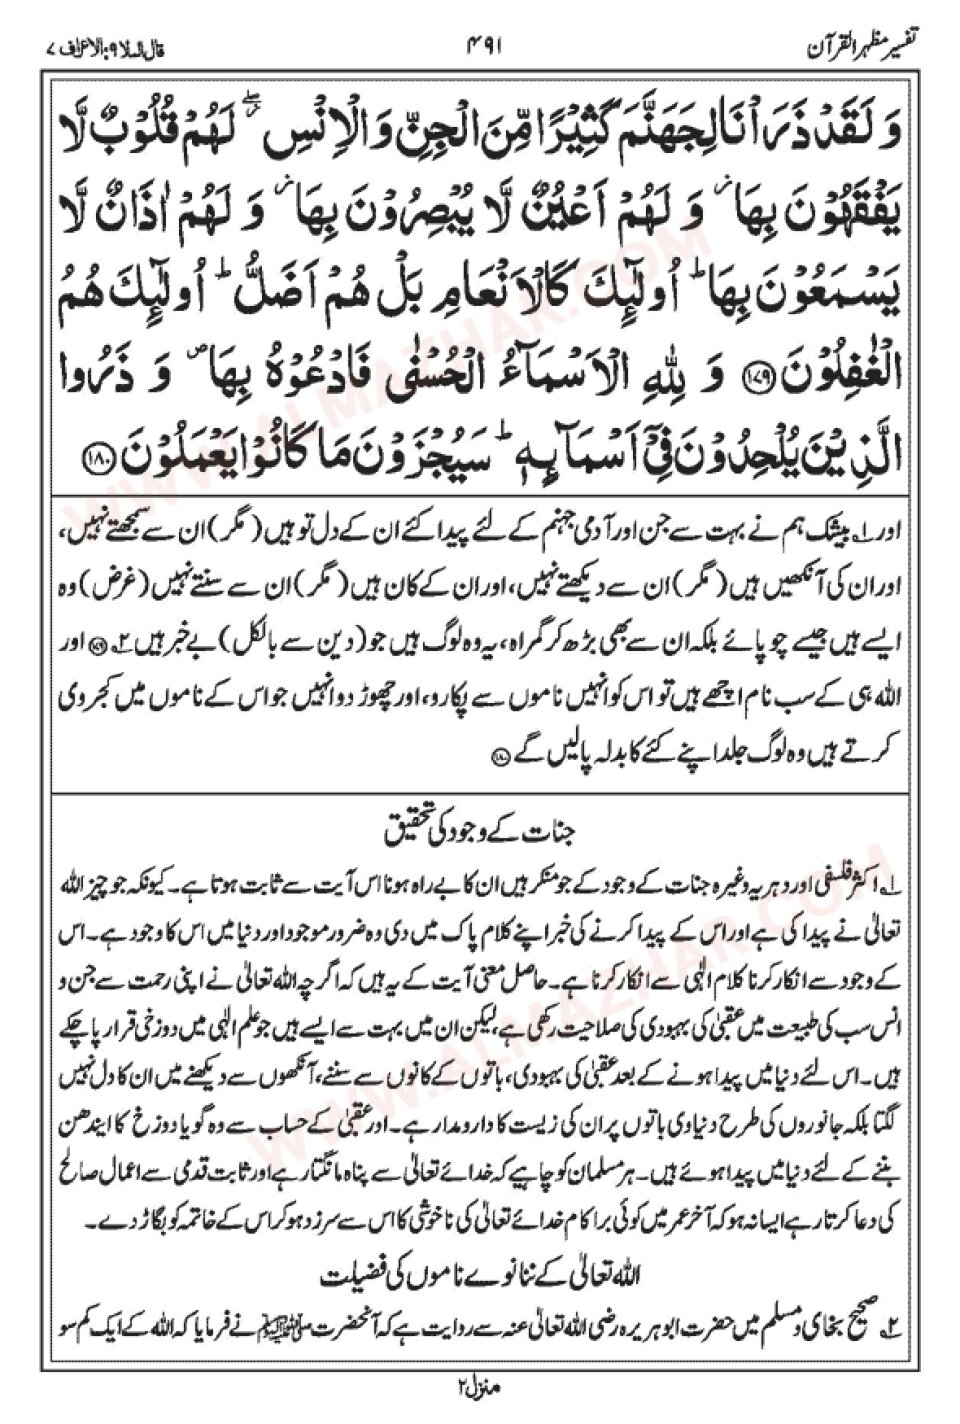 تفسیر مظہر القرآن
۴۹۱
قال الملا ۹: الاعراف ۷
وَلَقَدْ ذَرَاْنَا لِجَهَنَّمَ كَثِيْرًا مِّنَ الْجِنِّ وَالْاِنْسِ ۖ لَهُمْ قُلُوْبٌ لَّا
يَفْقَهُوْنَ بِهَا ۡ وَ لَهُمْ اَعْيُنٌ لَّا يُبْصِرُوْنَ بِهَا ۡ وَ لَهُمْ اٰذَانٌ لَّا
يَسْمَعُوْنَ بِهَا ؕ اُولٰٓئِكَ كَالْاَنْعَامِ بَلْ هُمْ اَضَلُّ ؕ اُولٰٓئِكَ هُمُ
الْغٰفِلُوْنَ ﴿۱۷۹﴾ وَ لِلّٰهِ الْاَسْمَآءُ الْحُسْنٰى فَادْعُوْهُ بِهَا ۪ وَ ذَرُوا
الَّذِيْنَ يُلْحِدُوْنَ فِيْٓ اَسْمَآىِٕهٖ ؕ سَيُجْزَوْنَ مَا كَانُوْا يَعْمَلُوْنَ ﴿۱۸۰﴾
اور ۱؎ بیشک ہم نے بہت سے جن اور آدمی جہنم کے لئے پیدا کئے ان کے دل تو ہیں (مگر) ان سے سمجھتے نہیں،
اور ان کی آنکھیں ہیں (مگر) ان سے دیکھتے نہیں، اور ان کے کان ہیں (مگر) ان سے سنتے نہیں (غرض) وہ
ایسے ہیں جیسے چوپائے بلکہ ان سے بھی بڑھ کر گمراہ، یہ وہ لوگ ہیں جو (دین سے بالکل) بے خبر ہیں ۲؎ ﴿۱۷۹﴾ اور
اللہ ہی کے سب نام اچھے ہیں تو اس کو انہیں ناموں سے پکارو، اور چھوڑ دو انہیں جو اس کے ناموں میں کجروی
کرتے ہیں وہ لوگ جلد اپنے کئے کا بدلہ پالیں گے ﴿۱۸۰﴾
جنات کے وجود کی تحقیق
۱؎ اکثر فلسفی اور دہریہ وغیرہ جنات کے وجود کے جو منکر ہیں ان کا بے راہ ہونا اس آیت سے ثابت ہوتا ہے۔ کیونکہ جو چیز اللہ
تعالیٰ نے پیدا کی ہے اور اس کے پیدا کرنے کی خبر اپنے کلام پاک میں دی وہ ضرور موجود اور دنیا میں اس کا وجود ہے۔ اس
کے وجود سے انکار کرنا کلام الٰہی سے انکار کرنا ہے۔ حاصل معنی آیت کے یہ ہیں کہ اگر چہ اللہ تعالیٰ نے اپنی رحمت سے جن و
انس سب کی طبیعت میں عقبیٰ کی بہبودی کی صلاحیت رکھی ہے، لیکن ان میں بہت سے ایسے ہیں جو علم الٰہی میں دوزخی قرار پا چکے
ہیں۔ اس لئے دنیا میں پیدا ہونے کے بعد عقبیٰ کی بہبودی، باتوں کے کانوں سے سننے، آنکھوں سے دیکھنے میں ان کا دل نہیں
لگتا بلکہ جانوروں کی طرح دنیاوی باتوں پر ان کی زیست کا دارومدار ہے۔ اور عقبیٰ کے حساب سے وہ گویا دوزخ کا ایندھن
بننے کے لئے دنیا میں پیدا ہوئے ہیں۔ ہر مسلمان کو چاہیے کہ خدائے تعالیٰ سے پناہ مانگتا رہے اور ثابت قدمی سے اعمال صالح
کی دعا کرتا رہے ایسا نہ ہو کہ آخر عمر میں کوئی برا کام خدائے تعالیٰ کی ناخوشی کا اس سے سرزد ہو کر اس کے خاتمہ کو بگاڑ دے۔
اللہ تعالیٰ کے ننانوے ناموں کی فضیلت
۲؎ صحیح بخاری و مسلم میں حضرت ابو ہریرہ رضی اللہ تعالیٰ عنہ سے روایت ہے کہ آنحضرت ﷺ نے فرمایا کہ اللہ کے ایک کم سو
منزل ۲
WWW.ALMAZHAR.COM
WWW.ALMAZHAR.COM